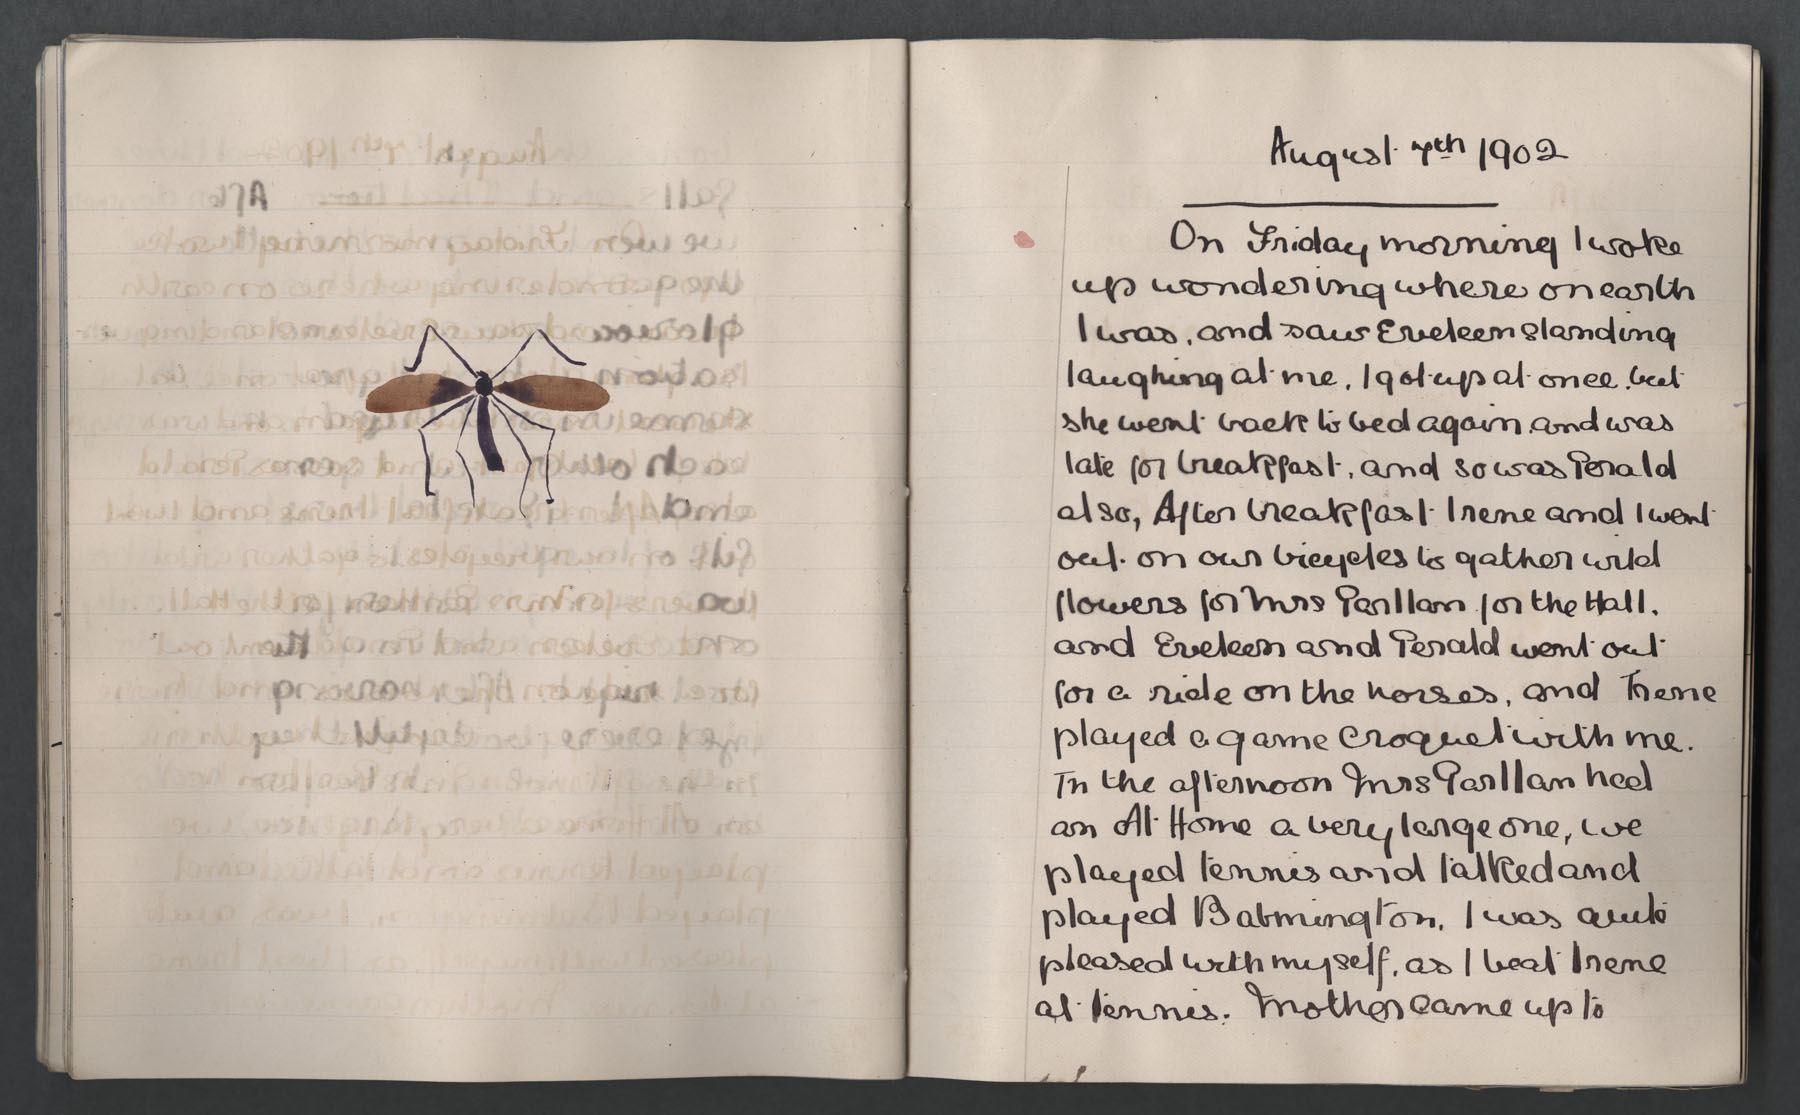 August 7th 1902
On Friday morning I woke
up wondering where on earth
I was, and saw Eveleen standing
laughing at me, I got up at once, but
she went back to bed again, and was
late for breakfast, and so was Gerald
also, After breakfast Irene and I went
out on our bicycles to gather wild
flowers for Mrs Parllam for the Hall,
and Eveleen and Gerald went out
for a ride on the horses, and Irene
played a game Croquet with me.
In the afternoon Mrs Parllam had
an At Home a very large one, we
played tennis and talked and
played Batmington, I was quite
pleased with myself, as I beat Irene
at tennis. Mother came up to